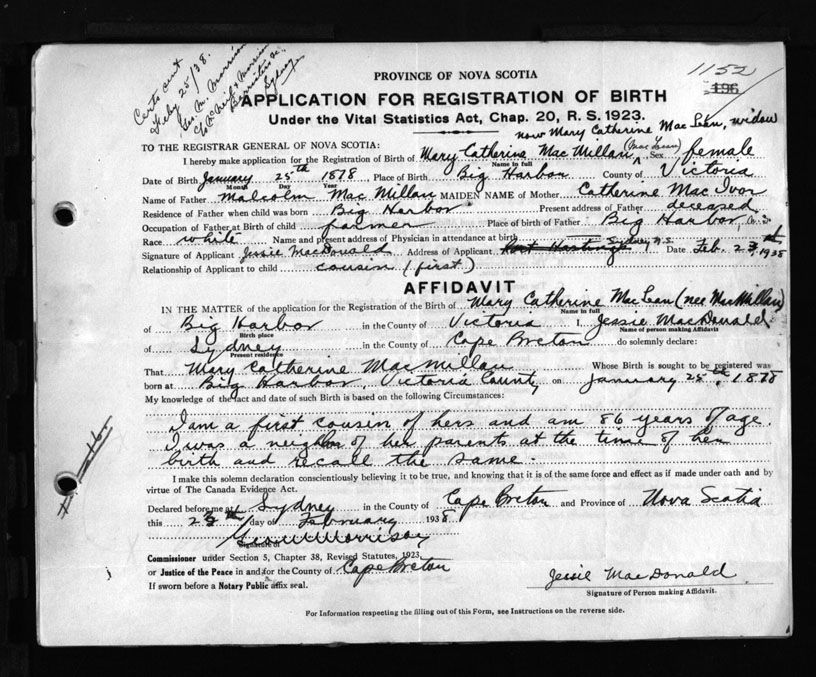 Certs sent
Feby 25/38.
Geo. M. Morrison
c/o Neil R. Morrison
Barrister &c
Sydney
PROVINCE OF NOVA SCOTIA
1152
196
APPLICATION FOR REGISTRATION OF BIRTH
Under the Vital Statistics Act, Chap. 20, R. S. 1923.
now Mary Catherine MacLean, widow
TO THE REGISTRAR GENERAL OF NOVA SCOTIA:
I hereby make application for the Registration of Birth of Mary Catherine MacMillan (MacLean) Sex female
Name in full
Date of Birth January 25th 1878 Place of Birth Big Harbor County of Victoria
Month Day Year
Name of Father Malcolm MacMillan MAIDEN NAME of Mother Catherine MacIvor
Residence of Father when child was born Big Harbor Present address of Father deceased
Occupation of Father at Birth of child farmer Place of birth of Father Big Harbor, N.S.
Race white Name and present address of Physician in attendance at birth
Sydney N.S.
Signature of Applicant Jessie MacDonald Address of Applicant Port Hastings Date Feb. 23 1938
Relationship of Applicant to child cousin (first)
AFFIDAVIT
IN THE MATTER of the application for the Registration of the Birth of Mary Catherine MacLean (nee MacMillan)
Name in full
of Big Harbor in the County of Victoria I, Jessie MacDonald
Birth place Name of person making Affidavit
of Sydney in the County of Cape Breton do solemnly declare:
Present residence
That Mary Catherine MacMillan Whose Birth is sought to be registered was
born at Big Harbor, Victoria County on January 25th, 1878
My knowledge of the fact and date of such Birth is based on the following Circumstances:
I am a first cousin of hers and am 86 years of age.
I was a neighbor of her parents at the time of her
birth and recall the same.
I make this solemn declaration conscientiously believing it to be true, and knowing that it is of the same force and effect as if made under oath and by
virtue of The Canada Evidence Act.
Declared before me at Sydney in the County of Cape Breton and Province of Nova Scotia
this 23rd day of February 1938
Geo M Morrison
Signature of
Commissioner under Section 5, Chapter 38, Revised Statutes, 1923
or Justice of the Peace in and for the County of Cape Breton
If sworn before a Notary Public affix seal.
Jessie MacDonald
Signature of Person making Affidavit.
For Information respecting the filling out of this Form, see Instructions on the reverse side.